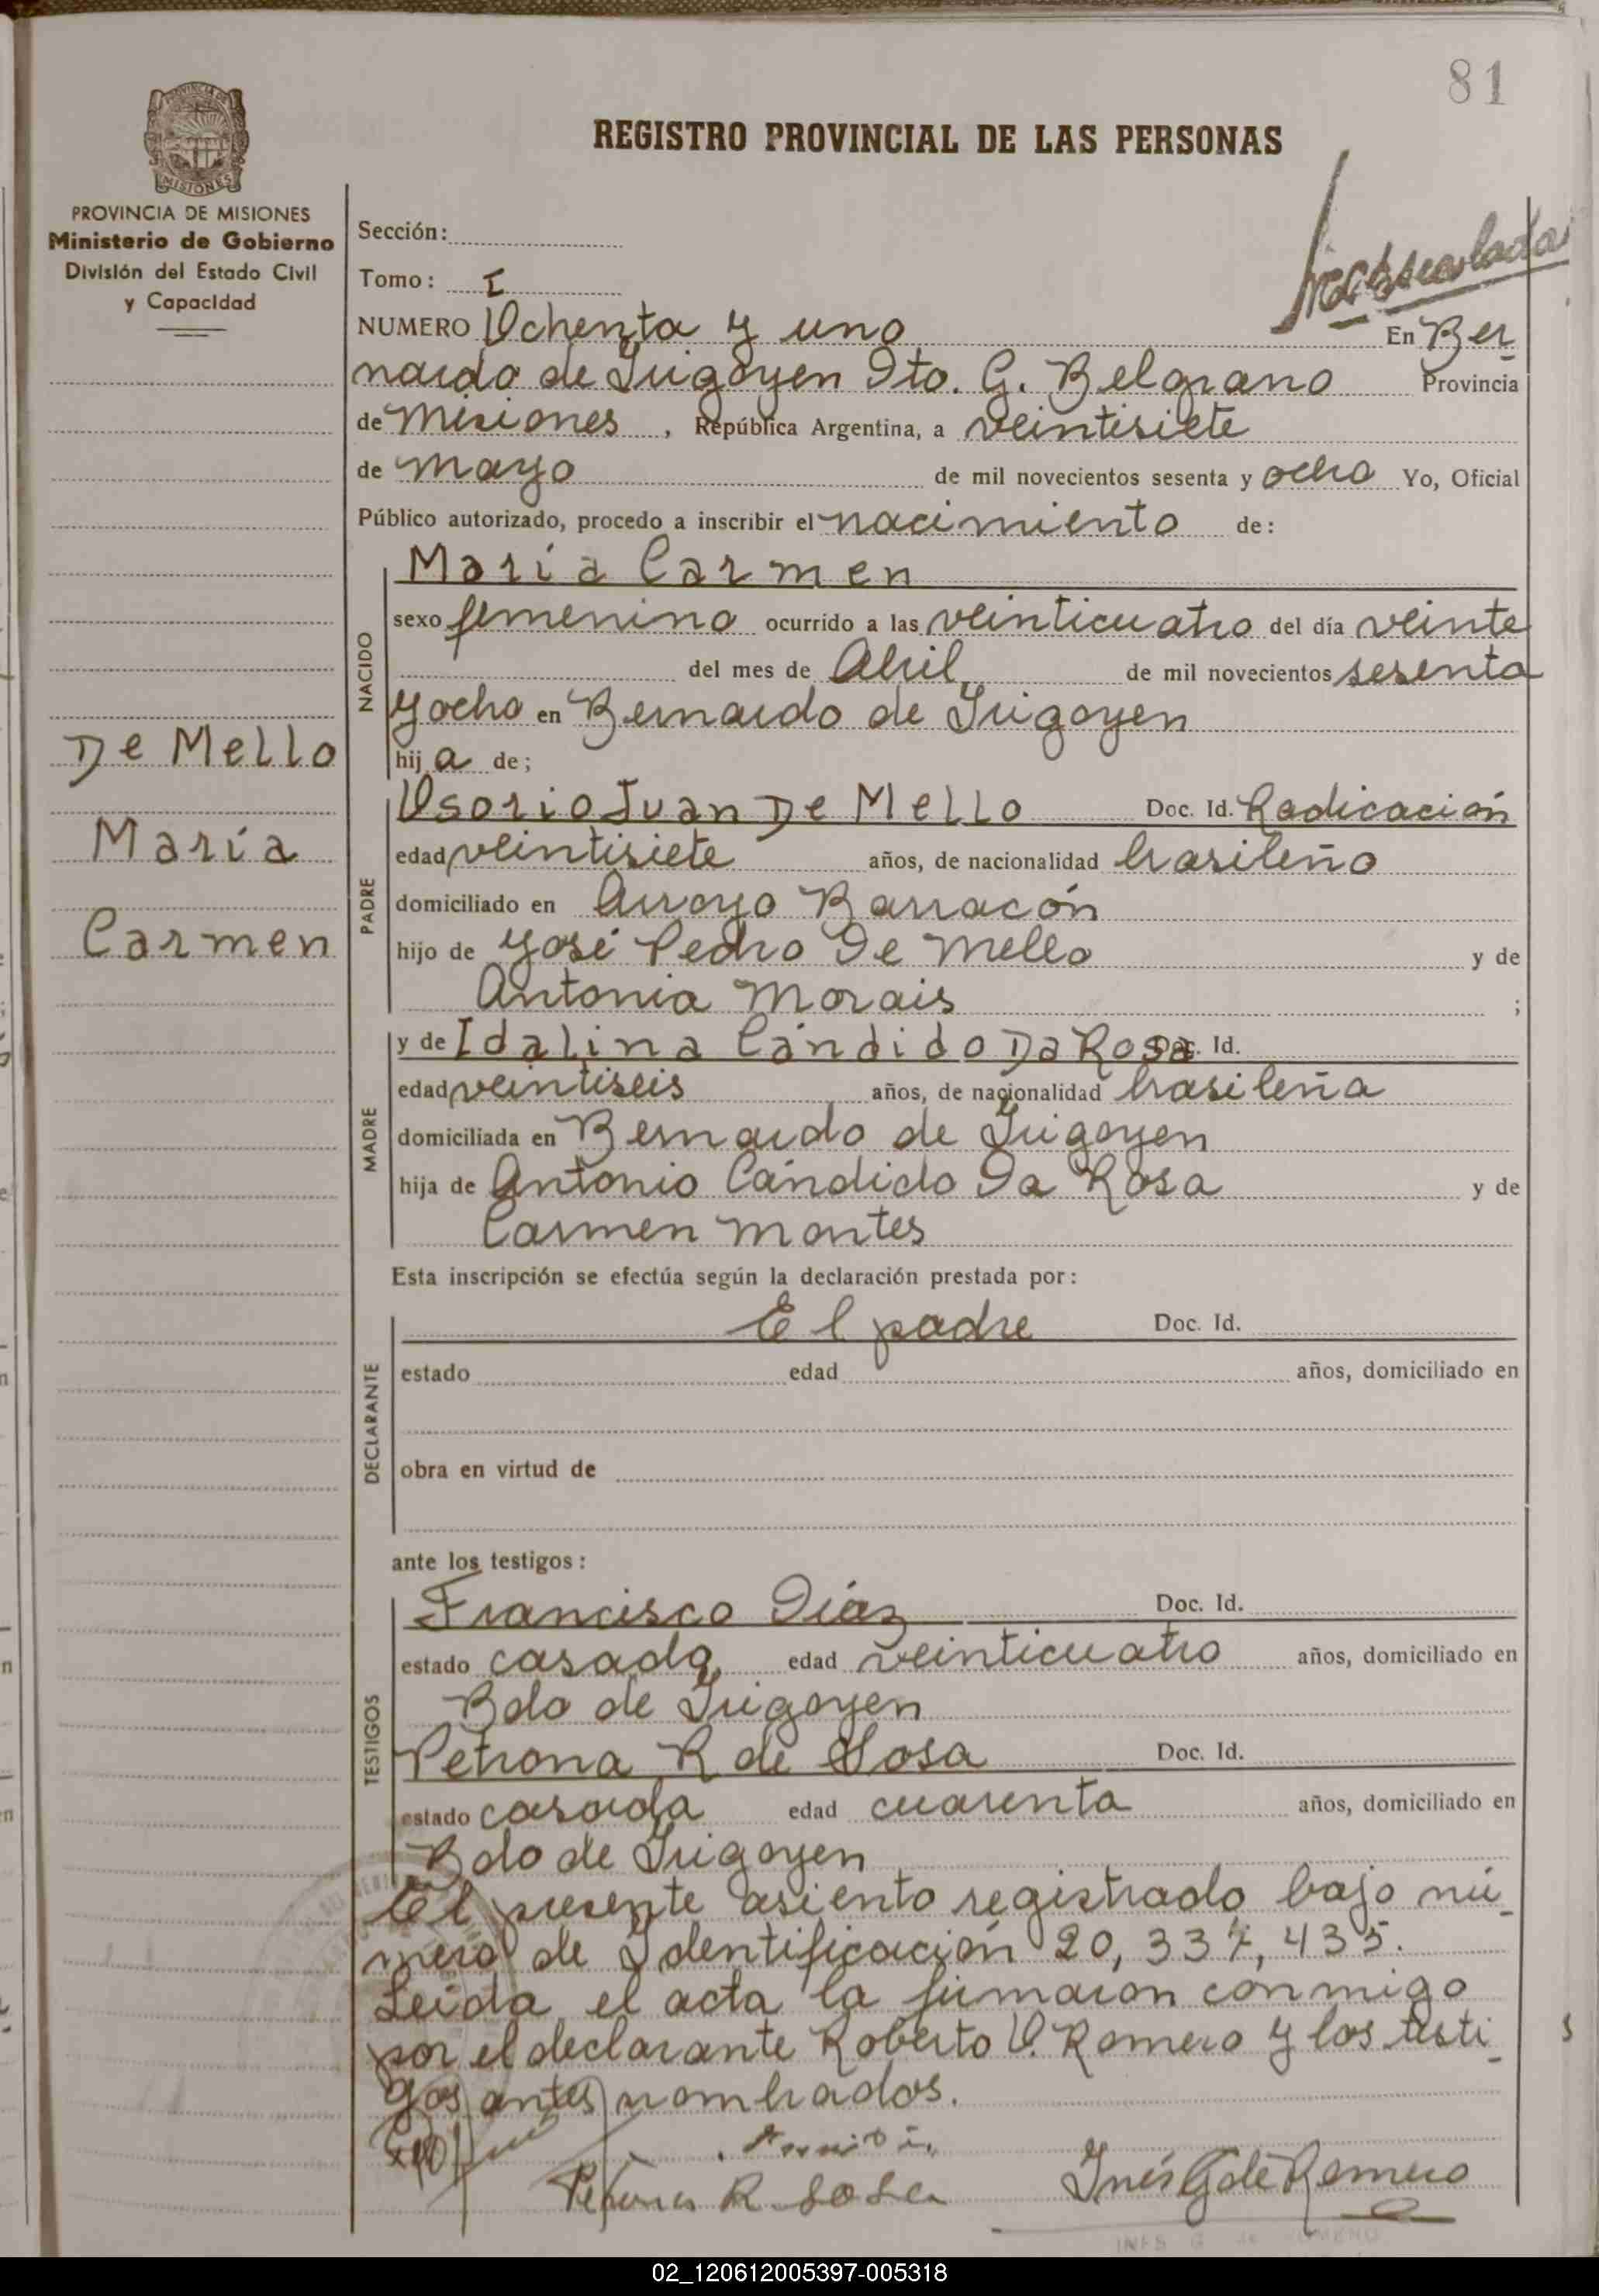 81
REGISTRO PROVINCIAL DE LAS PERSONAS
MISIONES
PROVINCIA DE MISIONES
Ministerio de Gobierno
División del Estado Civil
y Capacidad
Sección:
Tomo: I
NUMERO Ochenta y uno En Ber
nardo de Irigoyen Dto. G. Belgrano Provincia
de Misiones, República Argentina, a veintisiete
de mayo de mil novecientos sesenta y ocho Yo, Oficial
Público autorizado, procedo a inscribir el nacimiento de:
María Carmen
NACIDO
sexo femenino ocurrido a las veinticuatro del día veinte
del mes de Abril de mil novecientos sesenta
y ocho en Bernardo de Irigoyen
hija de;
De Mello
María
Carmen
PADRE
Osorio Juan De Mello Doc. Id. Radicación
edad veintisiete años, de nacionalidad brasileño
domiciliado en Arroyo Barracón
hijo de José Pedro De Mello y de
Antonia Morais ;
MADRE
y de Idalina Cándido Da Rosa Doc. Id.
edad veintiseis años, de nacionalidad brasileña
domiciliada en Bernardo de Irigoyen
hija de Antonio Cándido Da Rosa y de
Carmen Montes
Esta inscripción se efectúa según la declaración prestada por:
DECLARANTE
El padre Doc. Id.
estado edad años, domiciliado en
obra en virtud de
ante los testigos:
TESTIGOS
Francisco Díaz Doc. Id.
estado casado edad veinticuatro años, domiciliado en
Bdo de Irigoyen
Petrona R de Sosa Doc. Id.
estado casada edad cuarenta años, domiciliado en
Bdo de Irigoyen
El presente asiento registrado bajo nú_
mero de Identificación 20,337,435.
Leída el acta la firmaron conmigo
por el declarante Roberto O. Romero y los testi_
gos antes nombrados.
Petrona R Sosa
Inés G de Romero
02_120612005397-005318